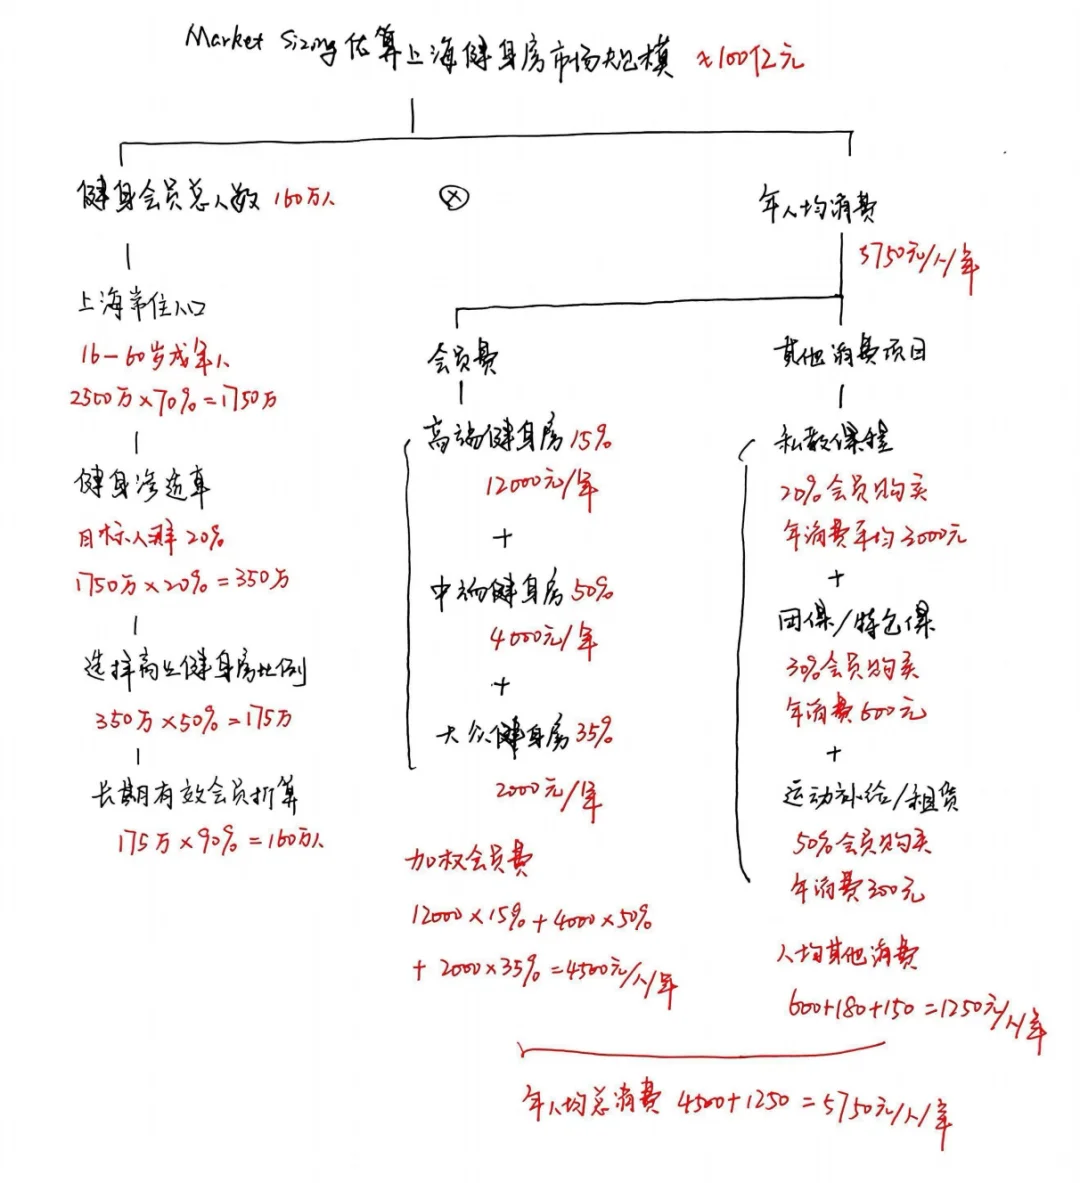 Market Sizing 估算上海健身房市场规模 ≈100亿元
健身会员总人数 160万人
⊗
年人均消费
5750元/人/年
上海常住人口
16-60岁成年人
2500万×70%=1750万
健身渗透率
目标人群 20%
1750万×20%=350万
选择商业健身房比例
350万×50%=175万
长期有效会员折算
175万×90%=160万人
会员费
高端健身房 15%
12000元/年
+
中端健身房 50%
4000元/年
+
大众健身房 35%
2000元/年
加权会员费
12000×15%+4000×50%
+2000×35%=4500元/人/年
其他消费项目
私教课程
20%会员购买
年消费平均3000元
+
团课/特色课
30%会员购买
年消费600元
+
运动补给/租赁
50%会员购买
年消费300元
人均其他消费
600+180+150=1250元/人/年
年人均总消费 4500+1250=5750元/人/年